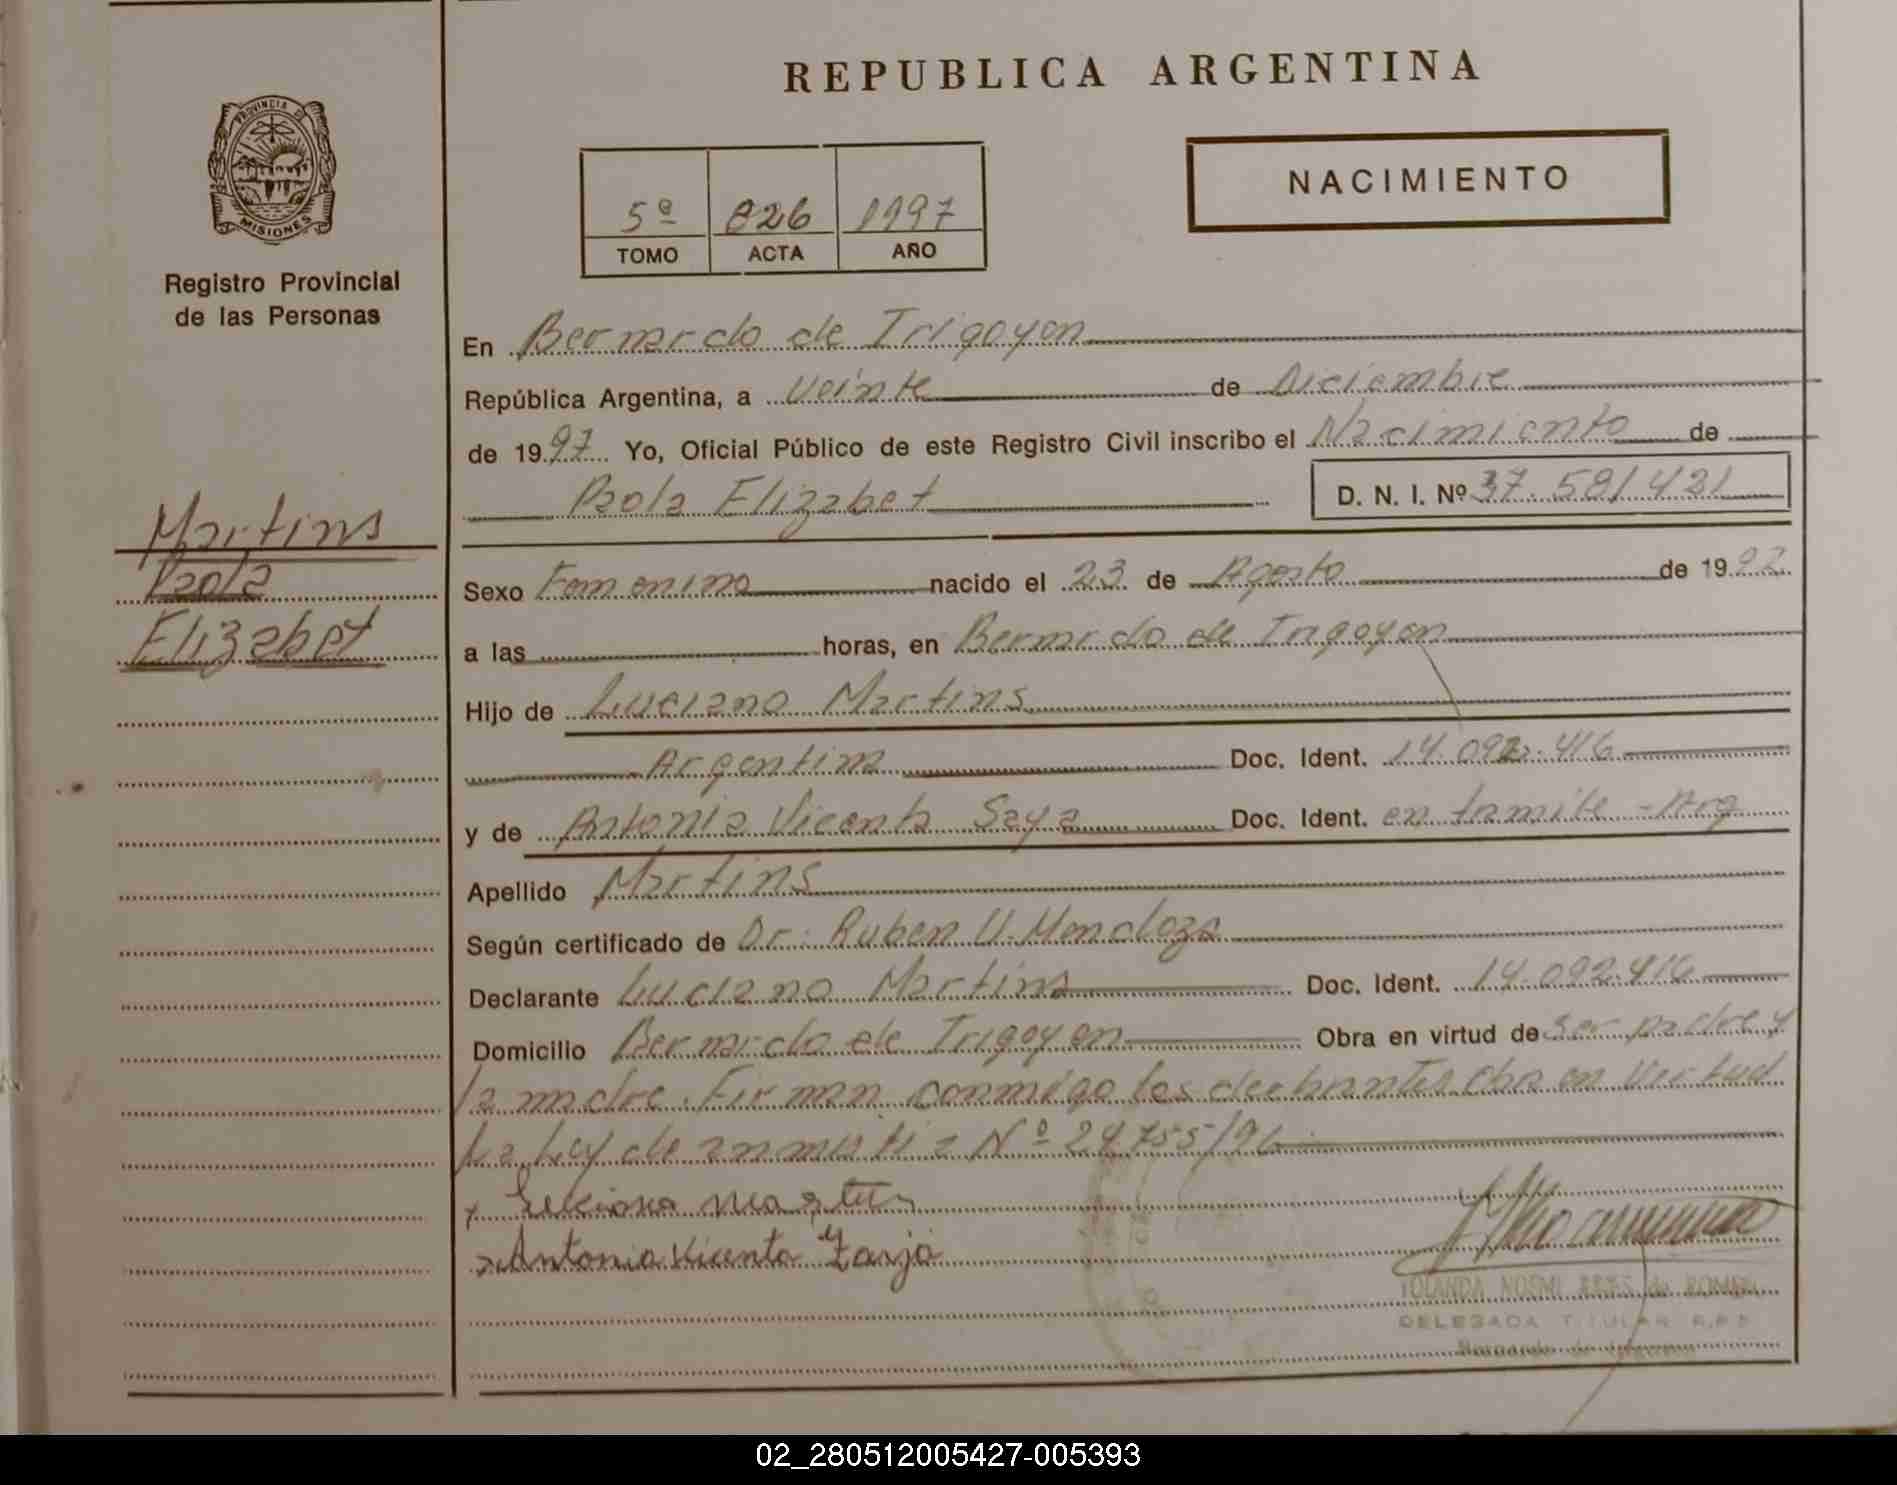 REPUBLICA ARGENTINA
PROVINCIA DE
MISIONES
Registro Provincial
de las Personas
NACIMIENTO
5º 826 1997
TOMO ACTA AÑO
En Bernardo de Irigoyen
República Argentina, a veinte de Diciembre
de 1997 Yo, Oficial Público de este Registro Civil inscribo el Nacimiento de
Paola Elizabet D. N. I. Nº 37.581421
Martins
Paola
Elizabet
Sexo Femenino nacido el 23 de Agosto de 1992
a las horas, en Bernardo de Irigoyen
Hijo de Luciano Martins
Argentina Doc. Ident. 14.092.416
y de Antonia Vicenta Saya Doc. Ident. en tramite - Arg
Apellido Martins
Según certificado de Dr. Ruben U. Mendoza
Declarante Luciano Martins Doc. Ident. 14.092.416
Domicilio Bernardo de Irigoyen Obra en virtud de ser padre y
la madre. Firman conmigo los declarantes Obra en Virtud
La Ley de anmistia Nº 24.755/96
x Luciano Martins
x Antonia Vicenta Zarja
YOLANDA NOEMI de ROMERO
DELEGADA TITULAR R.P.P.
Bernardo de Irigoyen
02_280512005427-005393